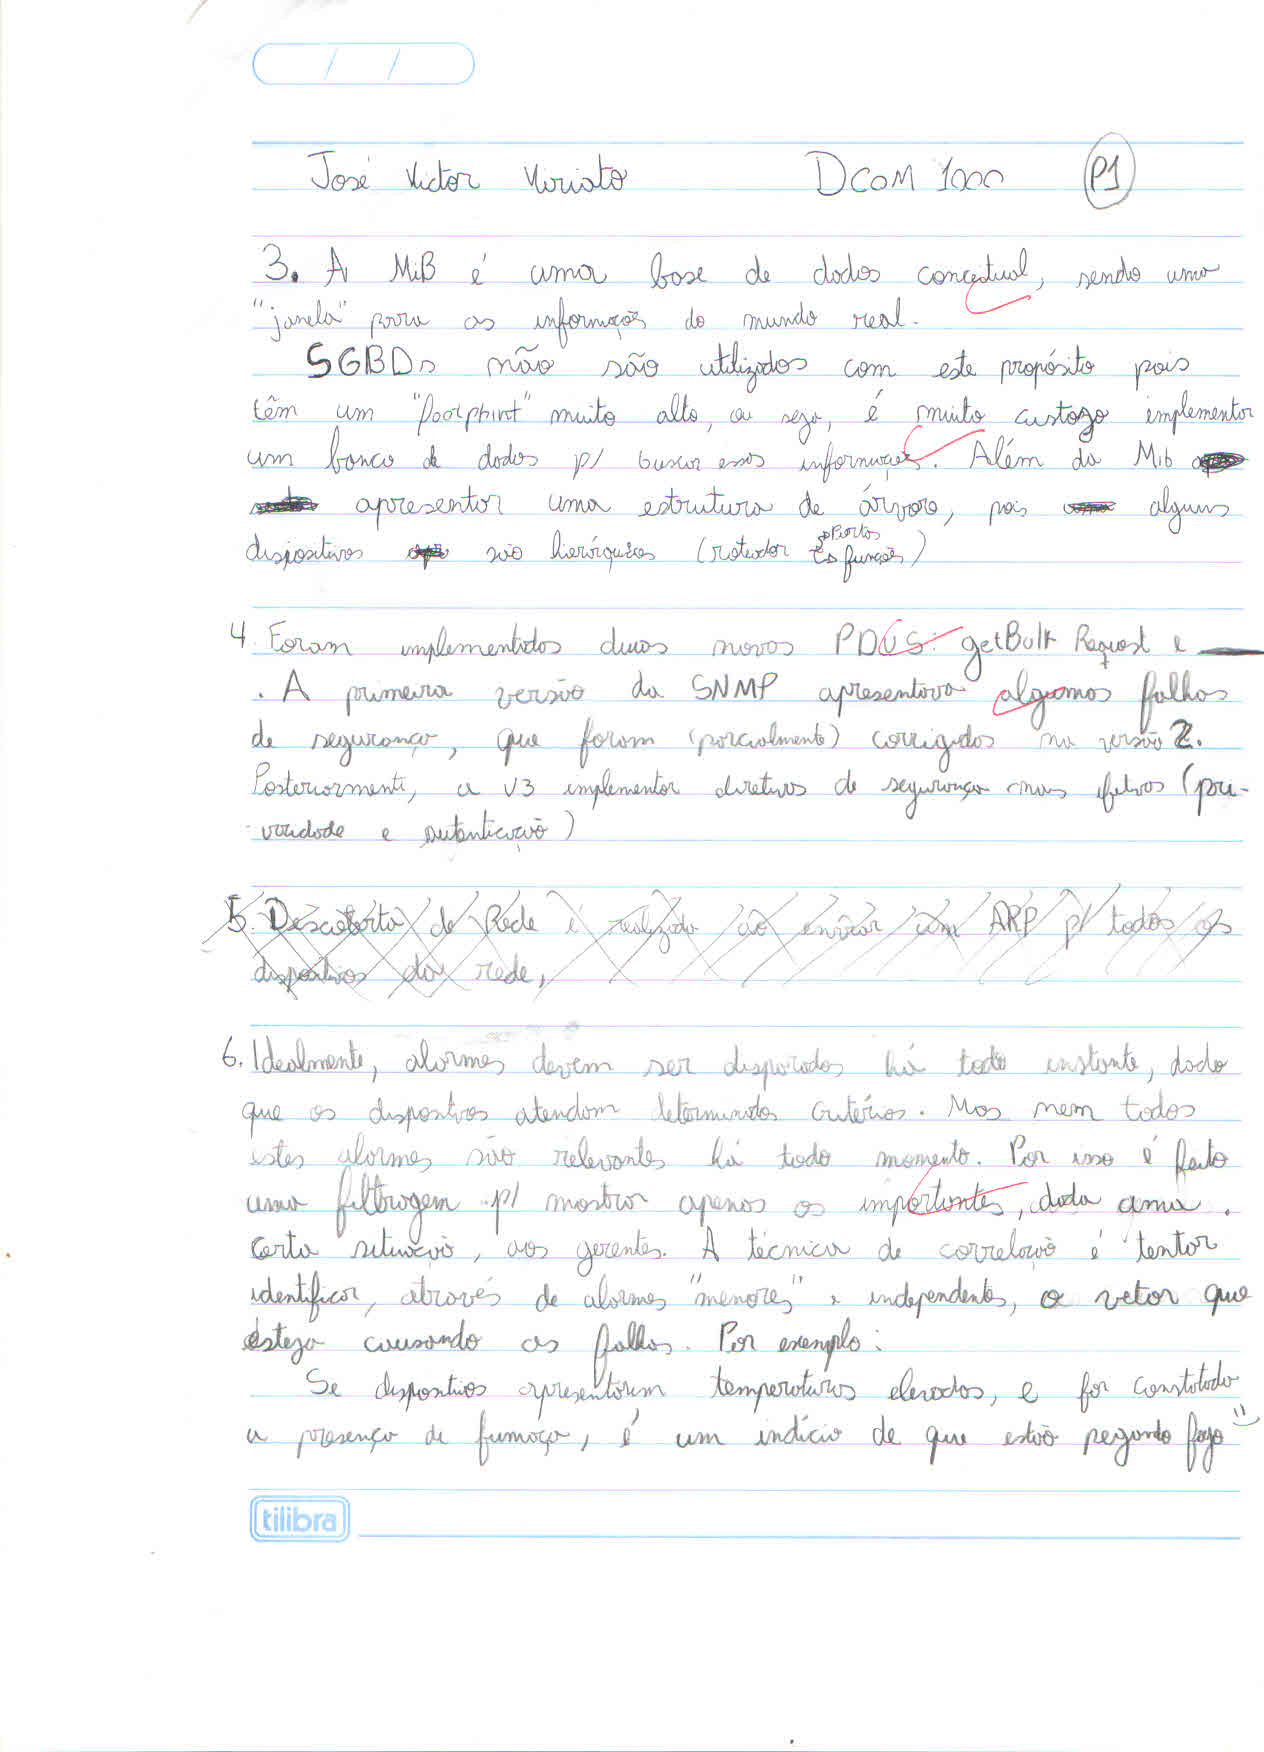 / /
José Victor Viriato DCOM 1000 P1
3. A MiB é uma base de dados conceitual, sendo uma
"janela" para as informações do mundo real.
SGBDs não são utilizados com este propósito pois
têm um "footprint" muito alto, ou seja, é muito custozo implementar
um banco de dados p/ buscar essas informações. Além da Mib
apresentar uma estrutura de árvore, pois alguns
dispositivos são hierárquicos (roteador portas funções)
4. Foram implementados duas novas PDUS: getBulk Request e
. A primeira versão da SNMP apresentava algumas falhas
de segurança, que foram (parcialmente) corrigidas na versão 2.
Posteriormente, a V3 implementar diretivas de segurança mais efetivas (pri-
vacidade e autenticação)
5. Descoberta de Rede é realizado ao enviar um ARP p/ todos os
dispositivos da rede,
6. Idealmente, alarmes devem ser disparados há todo instante, dado
que os dispositivos atendam determinados critérios. Mas nem todos
estes alarmes são relevantes há todo momento. Por isso é feito
uma filtragem p/ mostrar apenas os importantes, dada uma
certa situação, aos gerentes. A técnica de correlação é tentar
identificar, através de alarmes "menores" e independentes, o vetor que
esteja causando as falhas. Por exemplo:
Se dispositivos apresentarem temperaturas elevadas, e for constatada
a presença de fumaça, é um indício de que estão pegando fogo
tilibra